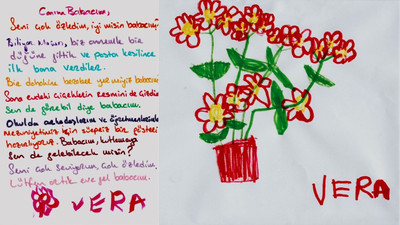 Canım Babacım,
Seni çok özledim, iyi misin babacım?
Biliyor musun, biz annemle bir
düğüne gittik ve pasta kesilince
ilk bana verdiler.
Bir dahakine beraber yer miyiz babacım
Sana evdeki çiçeklerin resmini de çizdim
Sen de görebil diye babacım.
Okulda arkadaşlarım ve öğretmenlerimle
Mezuniyetimiz için sürpriz bir gösteri
hazırlıyoruz. Babacım, kutlamaya
sen de gelebilecek misin?
Seni çok seviyorum, çok özledim,
Lütfen artık eve gel babacım.
VERA
VERA